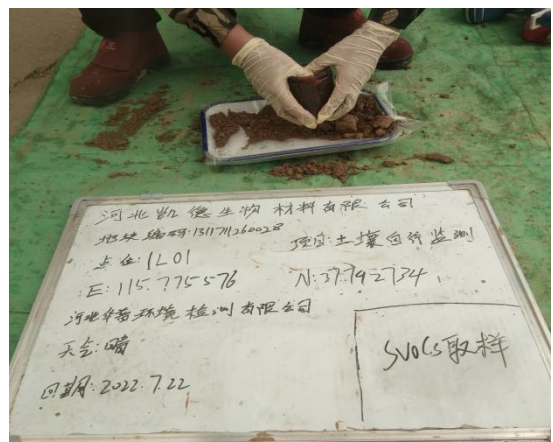 河北凯德生物材料有限公司
地块编码:1311711260028
项目:土壤自行监测
点位:1L01
E:115.775576
N:37.792734
河北华普环境检测有限公司
天气:晴
SVOCS取样
日期:2022.7.22